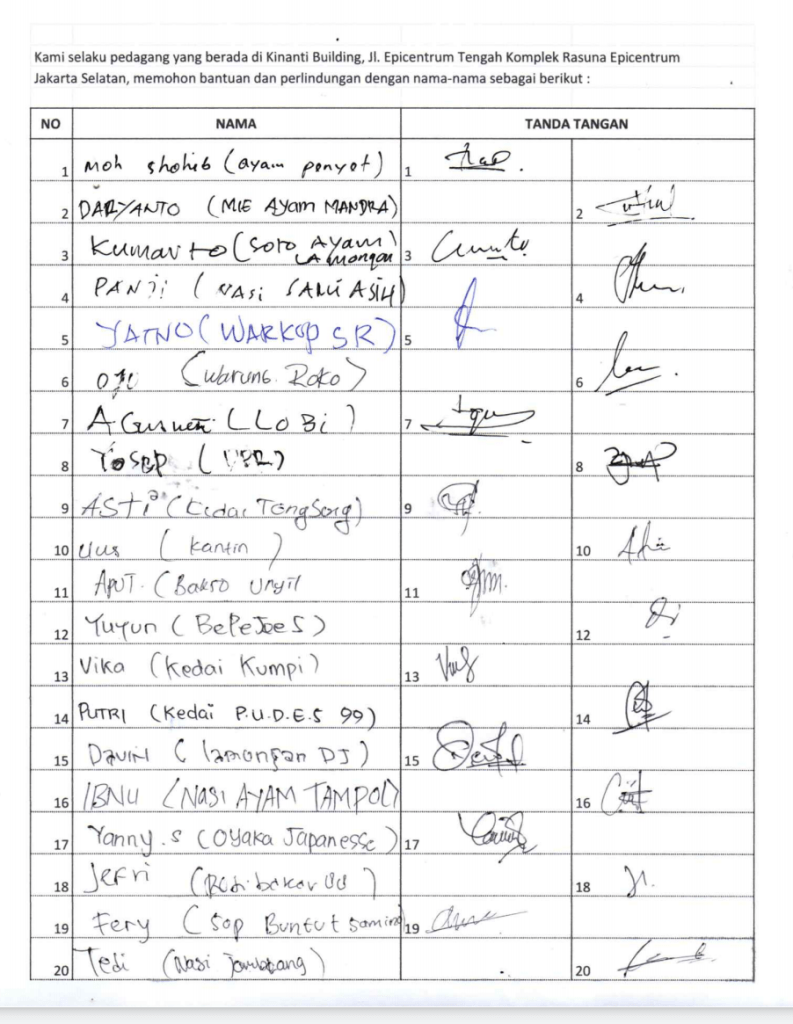 Kami selaku pedagang yang berada di Kinanti Building, Jl. Epicentrum Tengah Komplek Rasuna Epicentrum
Jakarta Selatan, memohon bantuan dan perlindungan dengan nama-nama sebagai berikut :
NO NAMA TANDA TANGAN
1 Moh Shohib (ayam penyet) 1
2 DARYANTO (MIE Ayam MANDRA) 2
3 Kumarto (Soto Ayam Lamongan) 3
4 PANJI (NASI SAMI ASIH) 4
5 YATNO (WARKOP SR) 5
6 (Warung Roko) 6
7 (LLOBi) 7
8 Yosep 8
9 ASTi (Kedai TongSong) 9
10 Uus (kantin) 10
11 APUT. (Bakso Unyil 11
12 Yuyun (BePeJeeS) 12
13 Vika (Kedai Kumpi) 13
14 PUTRI (Kedai P.U.D.E.S 99) 14
15 (lamongan DJ) 15
16 IBNU (NASI AYAM TAMPOL) 16
17 Yanny.S (Oyaka Japanesse) 17
18 Jefri (Roti bakar 18
19 Fery (Sop Buntut Samino 19
20 Tedi (Nasi 20